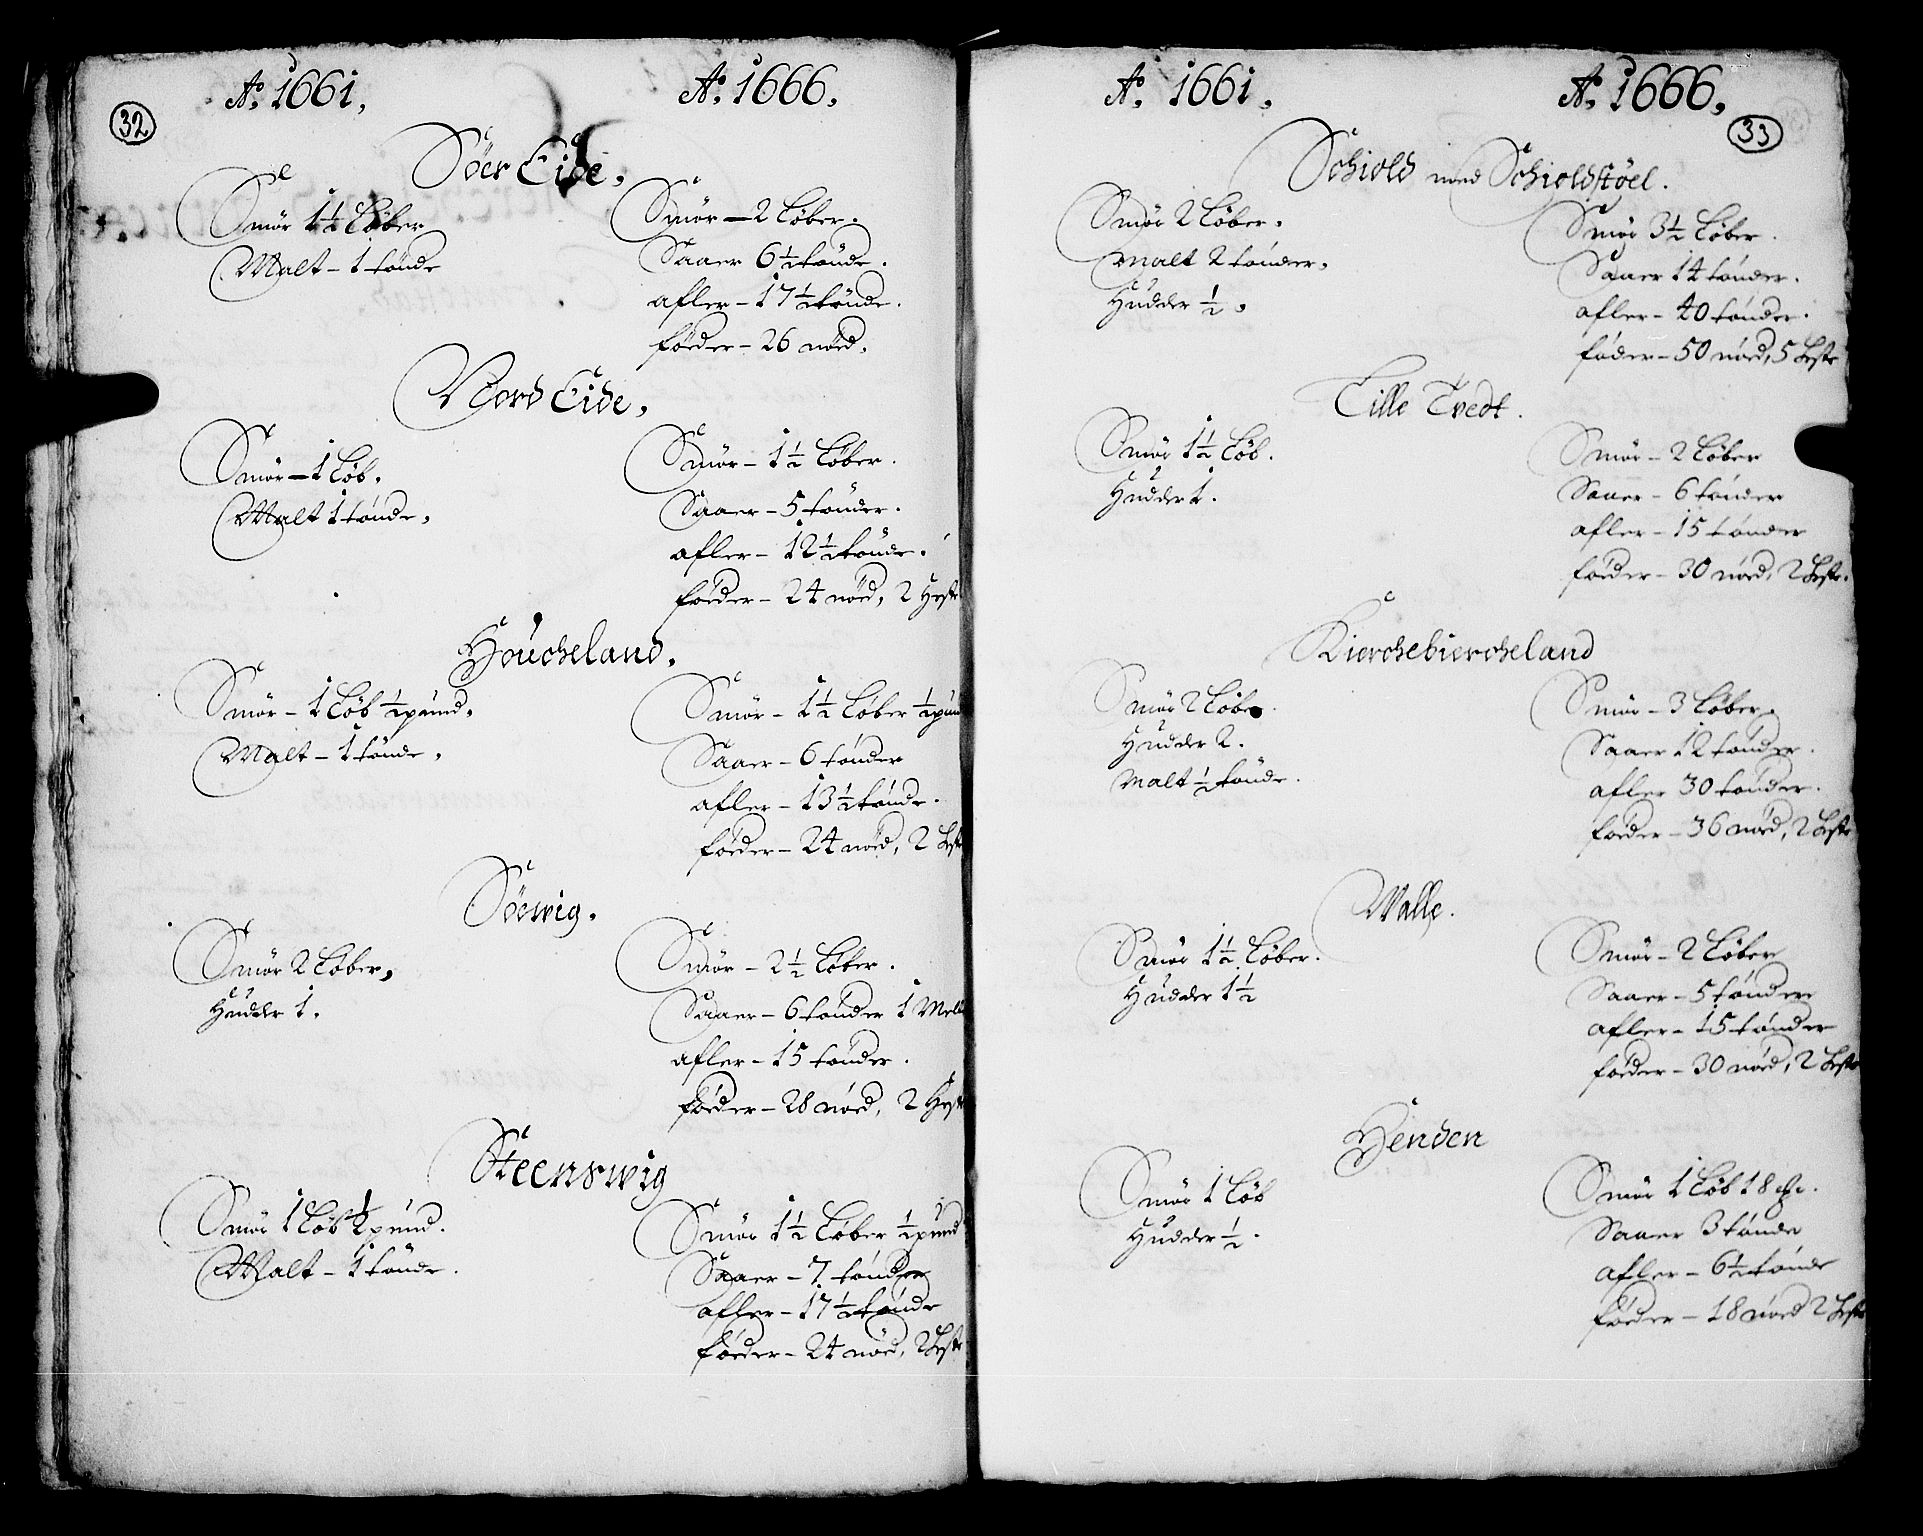 32
Ao. 1661, Ao. 1666,
Söer Eide,
Smör 1½ Löber
Malt - 1 tönde
Smör - 2 Löber.
Saaer 6½ tönde.
afler - 17½ tönde.
föeder - 26 nöed.
Nord Eide,
Smör - 1 Löb.
Malt 1 tönde,
Smör - 1½ Löber.
Saaer - 5 tönder.
afler - 12½ tönde.
föeder - 24 nöed, 2 Heste
Houcheland.
Smör - 1 Löb ½ pund.
Malt - 1 tönde,
Smör - 1½ Löber ½ pund
Saaer - 6 tönder
afler - 13½ tönde.
föeder - 24 nöed, 2 Heste
Söevig.
Smör 2 Löber,
Hudder 1.
Smör - 2½ Löber.
Saaer - 6 tönder 1 Mell
afler - 15 tönder.
föeder - 28 nöed, 2 Heste
Steenswig
Smör 1 Löb ½ pund.
Malt - 1 tönde.
Smör 1½ Löber ½ pund
Saaer - 7 tönder
afler - 17½ tönde
föeder - 24 nöed, 2 Heste
33
Ao. 1661, Ao. 1666,
Schiold med Schioldstöel.
Smör 2 Löber.
Malt 2 tönder,
Hudder ½,
Smör 3½ Löber.
Saaer 14 tönder.
afler - 40 tönder.
föder - 50 nöed, 5 Heste
Lille Tvedt.
Smör 1½ Löb.
Hudder 1.
Smör - 2 Löber
Saaer - 6 tönder
afler - 15 tönder
föeder - 30 nöed, 2 Heste.
Kierchebiercheland
Smör 2 Löber.
Hudder 2.
Malt ½ tönde.
Smör - 3 Löber.
Saaer 12 tönder.
afler 30 tönder.
föeder - 36 nöed, 2 Heste
Walle.
Smör 1½ Löber.
Hudder 1½
Smör - 2 Löber
Saaer - 5 tönder
afler - 15 tönder
föeder - 30 nöed, 2 Heste
Henden
Smör 1 Löb
Hudder ½.
Smör 1 Löb 18
Saaer 3 tönde
afler - 6½ tönde
föeder - 18 nöed 2 Heste